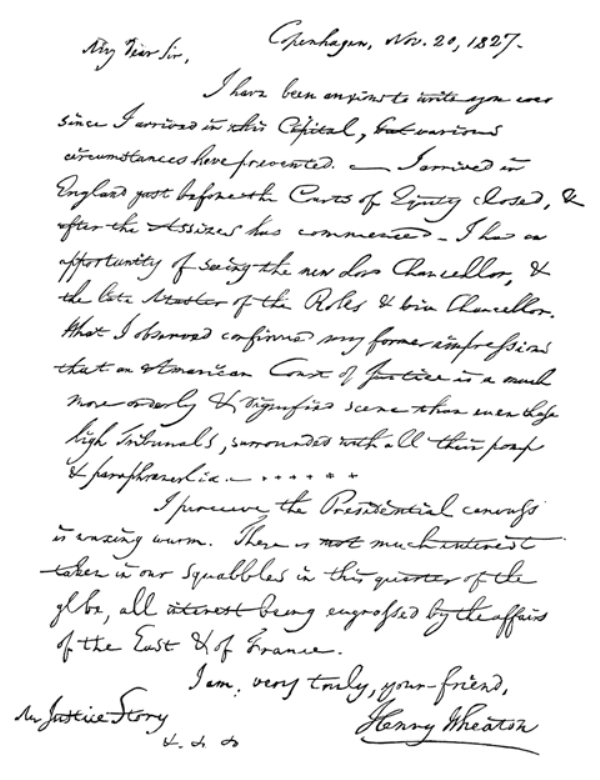 Copenhagen, Nov. 20, 1827.
My Dear Sir,
I have been anxious to write you ever
since I arrived in this Capital, but various
circumstances have prevented. — I arrived in
England just before the Courts of Equity closed, &
after the Assizes had commenced – I had an
opportunity of seeing the new Lord Chancellor, &
the late Master of the Rolls & Vice Chancellor.
What I observed confirmed my former impressions
that an American Court of Justice is a much
more orderly & dignified scene than even those
high Tribunals, surrounded with all their pomp
& paraphernalia. — · · · · · ·
I perceive the Presidential canvass
is waxing warm. There is not much interest
taken in our squabbles in this quarter of the
globe, all interest being engrossed by the affairs
of the East & of France.
I am, very truly, your friend,
Mr Justice Story Henry Wheaton